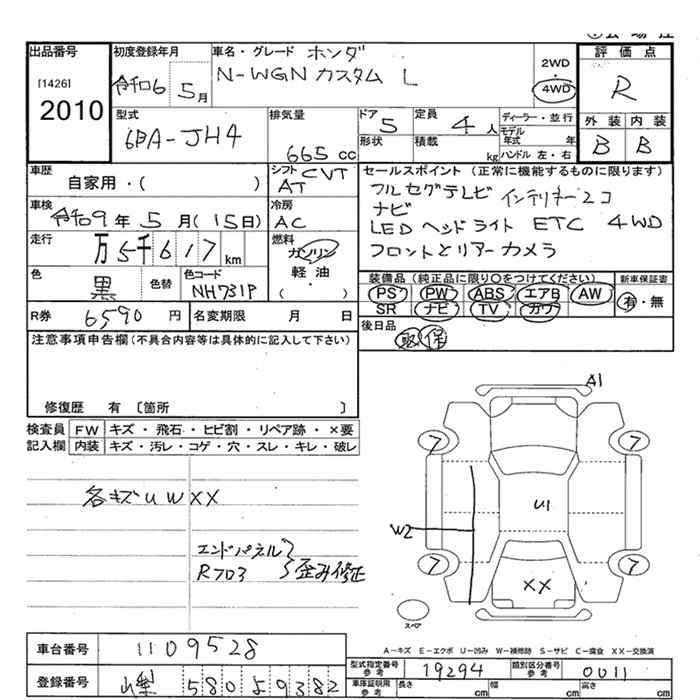 出品番号
[1426]
2010
初度登録年月
令和6 5月
車名・グレード ホンダ
N-WGN カスタム L
2WD
・
4WD
評価点
R
型式
6BA-JH4
排気量
665 cc
ドア
5
形状
定員
4人
積載
kg
ディーラー・並行
モデル
年式 年
ハンドル 左・右
外装 内装
B B
車歴
自家用・( )
シフト CVT
AT
セールスポイント (正常に機能するものに限ります)
フルセグテレビ
ナビ
LED ヘッドライト ETC 4WD
フロントとリアーカメラ
車検
令和9年5月(15日)
冷房
AC
走行
万5千617km
燃料
ガソリン
軽油・
( )
色
黒
色替
色コード
NH731P
装備品 (純正品に限り〇をつけてください)
PS PW ABS エアB AW
SR ナビ TV カワ
新車保証書
有・無
R券 6,590円
名変期限 月 日
後日品
取 保
注意事項申告欄 (不具合内容等は具体的に記入して下さい)
修復歴 有 〔箇所 〕
検査員
記入欄
FW キズ・飛石・ヒビ割・リペア跡・×要
内装 キズ・汚レ・コゲ・穴・スレ・キレ・破レ
各キズUWXX
エンドパネル
R703 歪み修正
A1
7 7
U1
W2
7 7
XX
スペア
A-キズ E-エクボ U-凹み W-補修跡 S-サビ C-腐食 XX-交換済
車台番号 1109528
登録番号 58059382
型式指定番号
参考
19294
類別区分番号
参考
0011
車庫証明用
参考
長さ cm
幅 cm
高さ cm